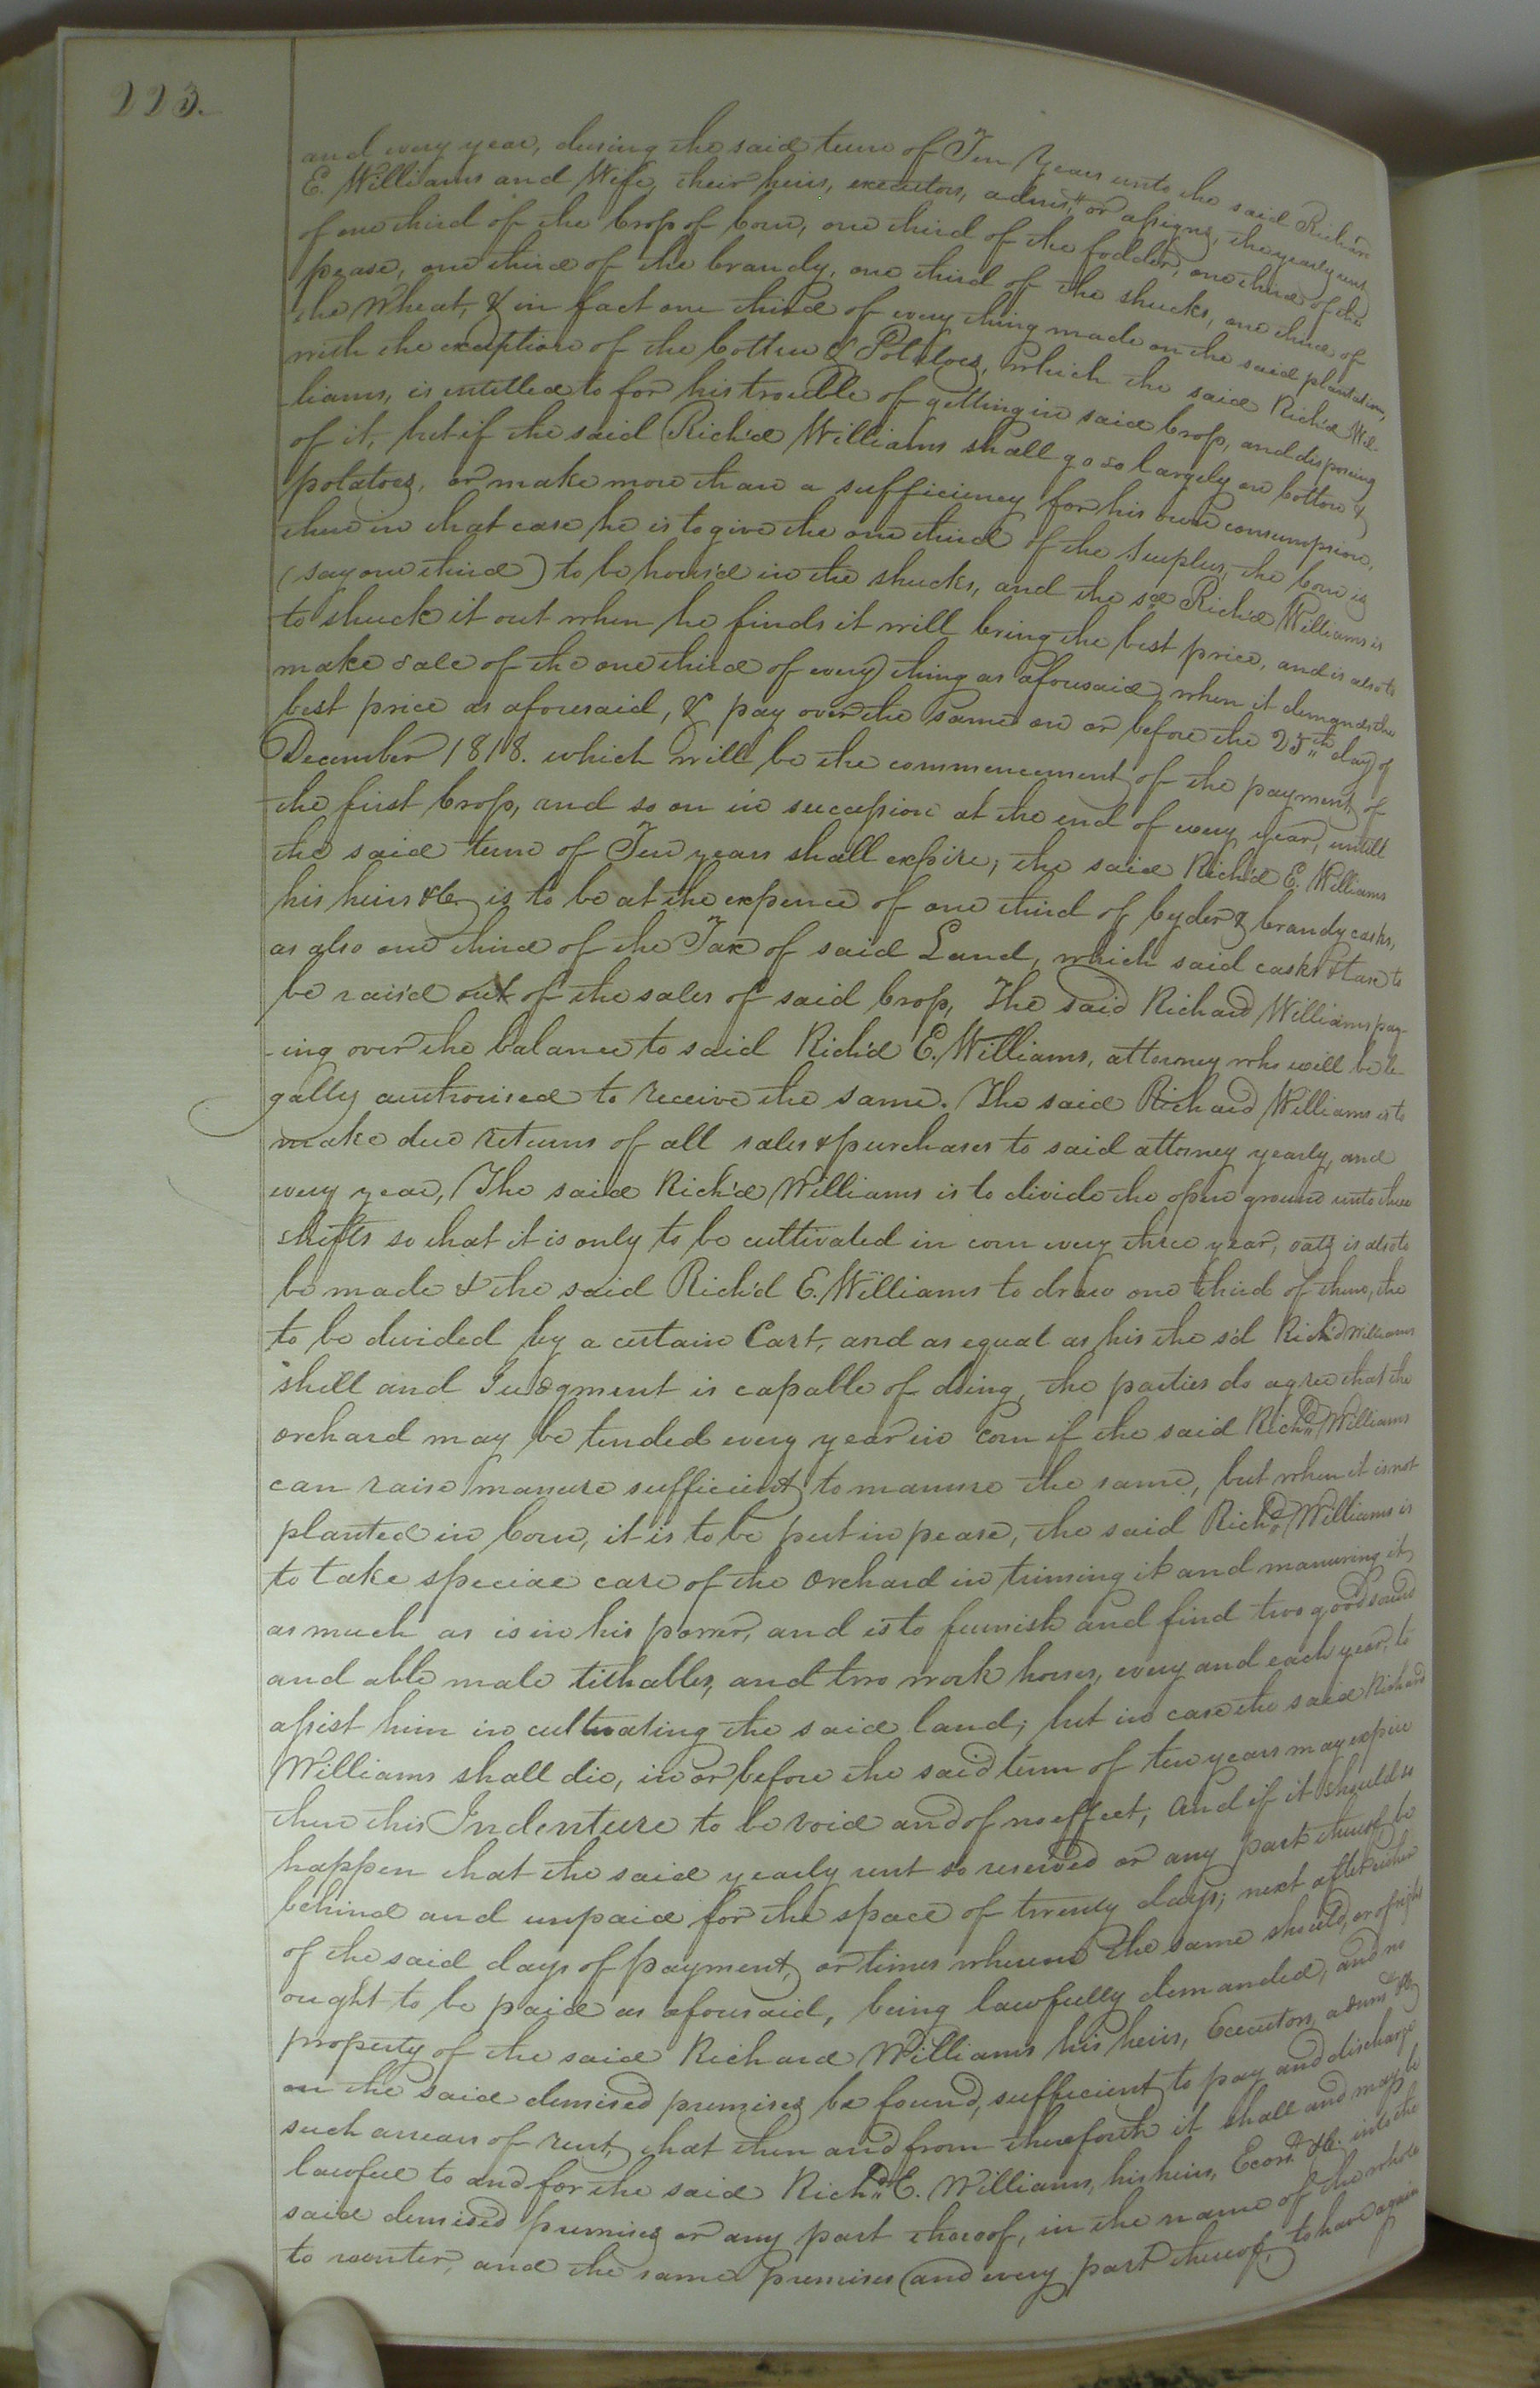 223.
and every year, during the said term of Ten Years unto the said Richard
E. Williams and Wife, their heirs, executors, admrs, or assigns, the yearly rent
of one third of the Crop of Corn, one third of the fodder, one third of the
pease, one third of the brandy, one third of the shucks, one third of
the Wheat, & in fact one third of every thing made on the said plantation,
with the exception of the Cotton & Potatoes, which the said Rich'd Wil-
liams, is entitled to for his trouble of getting in said Crop, and disposing
of it, but if the said Rich'd Williams shall go so largely on Cotton &
potatoes, or make more than a sufficiency for his own consumption,
then in that case he is to give the one third of the surplus, the Corn is
(say one third) to be hous'd in the shucks, and the sd Rich'd Williams is
to shuck it out when he finds it will bring the best price, and is also to
make sale of the one third of every thing as aforesaid, when it demands the
best price as aforesaid, & pay over the same on or before the 25th day of
December 1818. which will be the commencement of the payment of
the first Crop, and so on in succession at the end of every year, untill
the said term of Ten years shall expire; the said Rich'd E. Williams
his heirs &c is to be at the expence of one third of Cyder & brandy casks,
as also one third of the Tax of said Land, which said casks & tax to
be rais'd out of the sales of said Crop, The said Richard Williams pay-
-ing over the balance to said Rich'd E. Williams, attorney who will be le-
gally authorised to receive the same. The said Richard Williams is to
make due returns of all sales & purchases to said attorney yearly, and
every year, The said Rich'd Williams is to divide the open ground unto three
shifts so that it is only to be cultivated in corn every three year, oats is also to
be made & the said Rich'd E. Williams to draw one third of them, the
to be divided by a certain Cart, and as equal as his the s'd Rich'd Williams
skill and Judgment is capable of doing, the parties do agree that the
orchard may be tended every year in Corn if the said Richd Williams
can raise manure sufficient to manure the same, but when it is not
planted in Corn, it is to be put in pease, the said Richd Williams is
to take special care of the Orchard in triming it and manuring it
as much as is in his power, and is to furnish and find two good sound
and able male tithables, and two work horses, every and each year, to
assist him in cultivating the said land; but in case the said Richard
Williams shall die, in or before the said term of ten years may expire
then this Indenture to be void and of no effect; and if it should so
happen that the said yearly rent so reserved or any part thereof be
behind and unpaid for the space of twenty days; next after either
of the said days of payment, or times whereon the same should, or of right
ought to be paid as aforesaid, being lawfully demanded, and no
property of the said Richard Williams his heirs, Executors, admrs &c
on the said demised premises be found, sufficient to pay and discharge
such arrears of rent, that then and from thenceforth it shall and may be
lawful to and for the said Richd E. Williams, his heirs, Exors. &c. into the
said demised premises or any part thereof, in the name of the whole
to reenter, and the same premises (and every part thereof, to have again